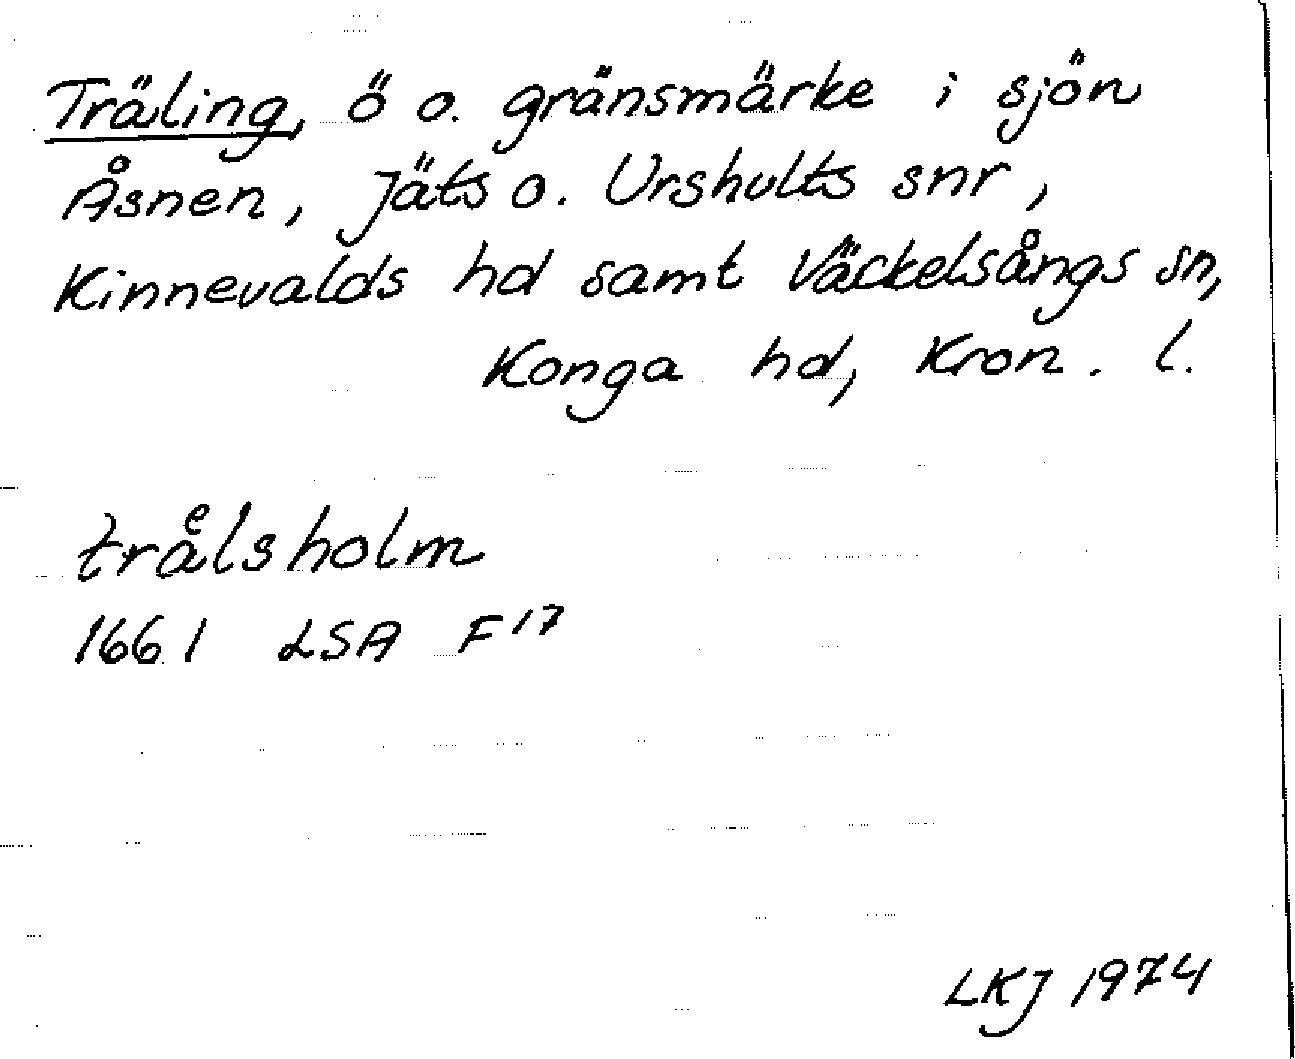 Träling, ö o. gränsmärke i sjön
Åsnen, Jäts o. Urshults snr,
Kinnevalds hd samt Väckelsångs sn,
Konga hd, Kron. l.
traͤlsholm
1661 LSA F17
LKJ 1974